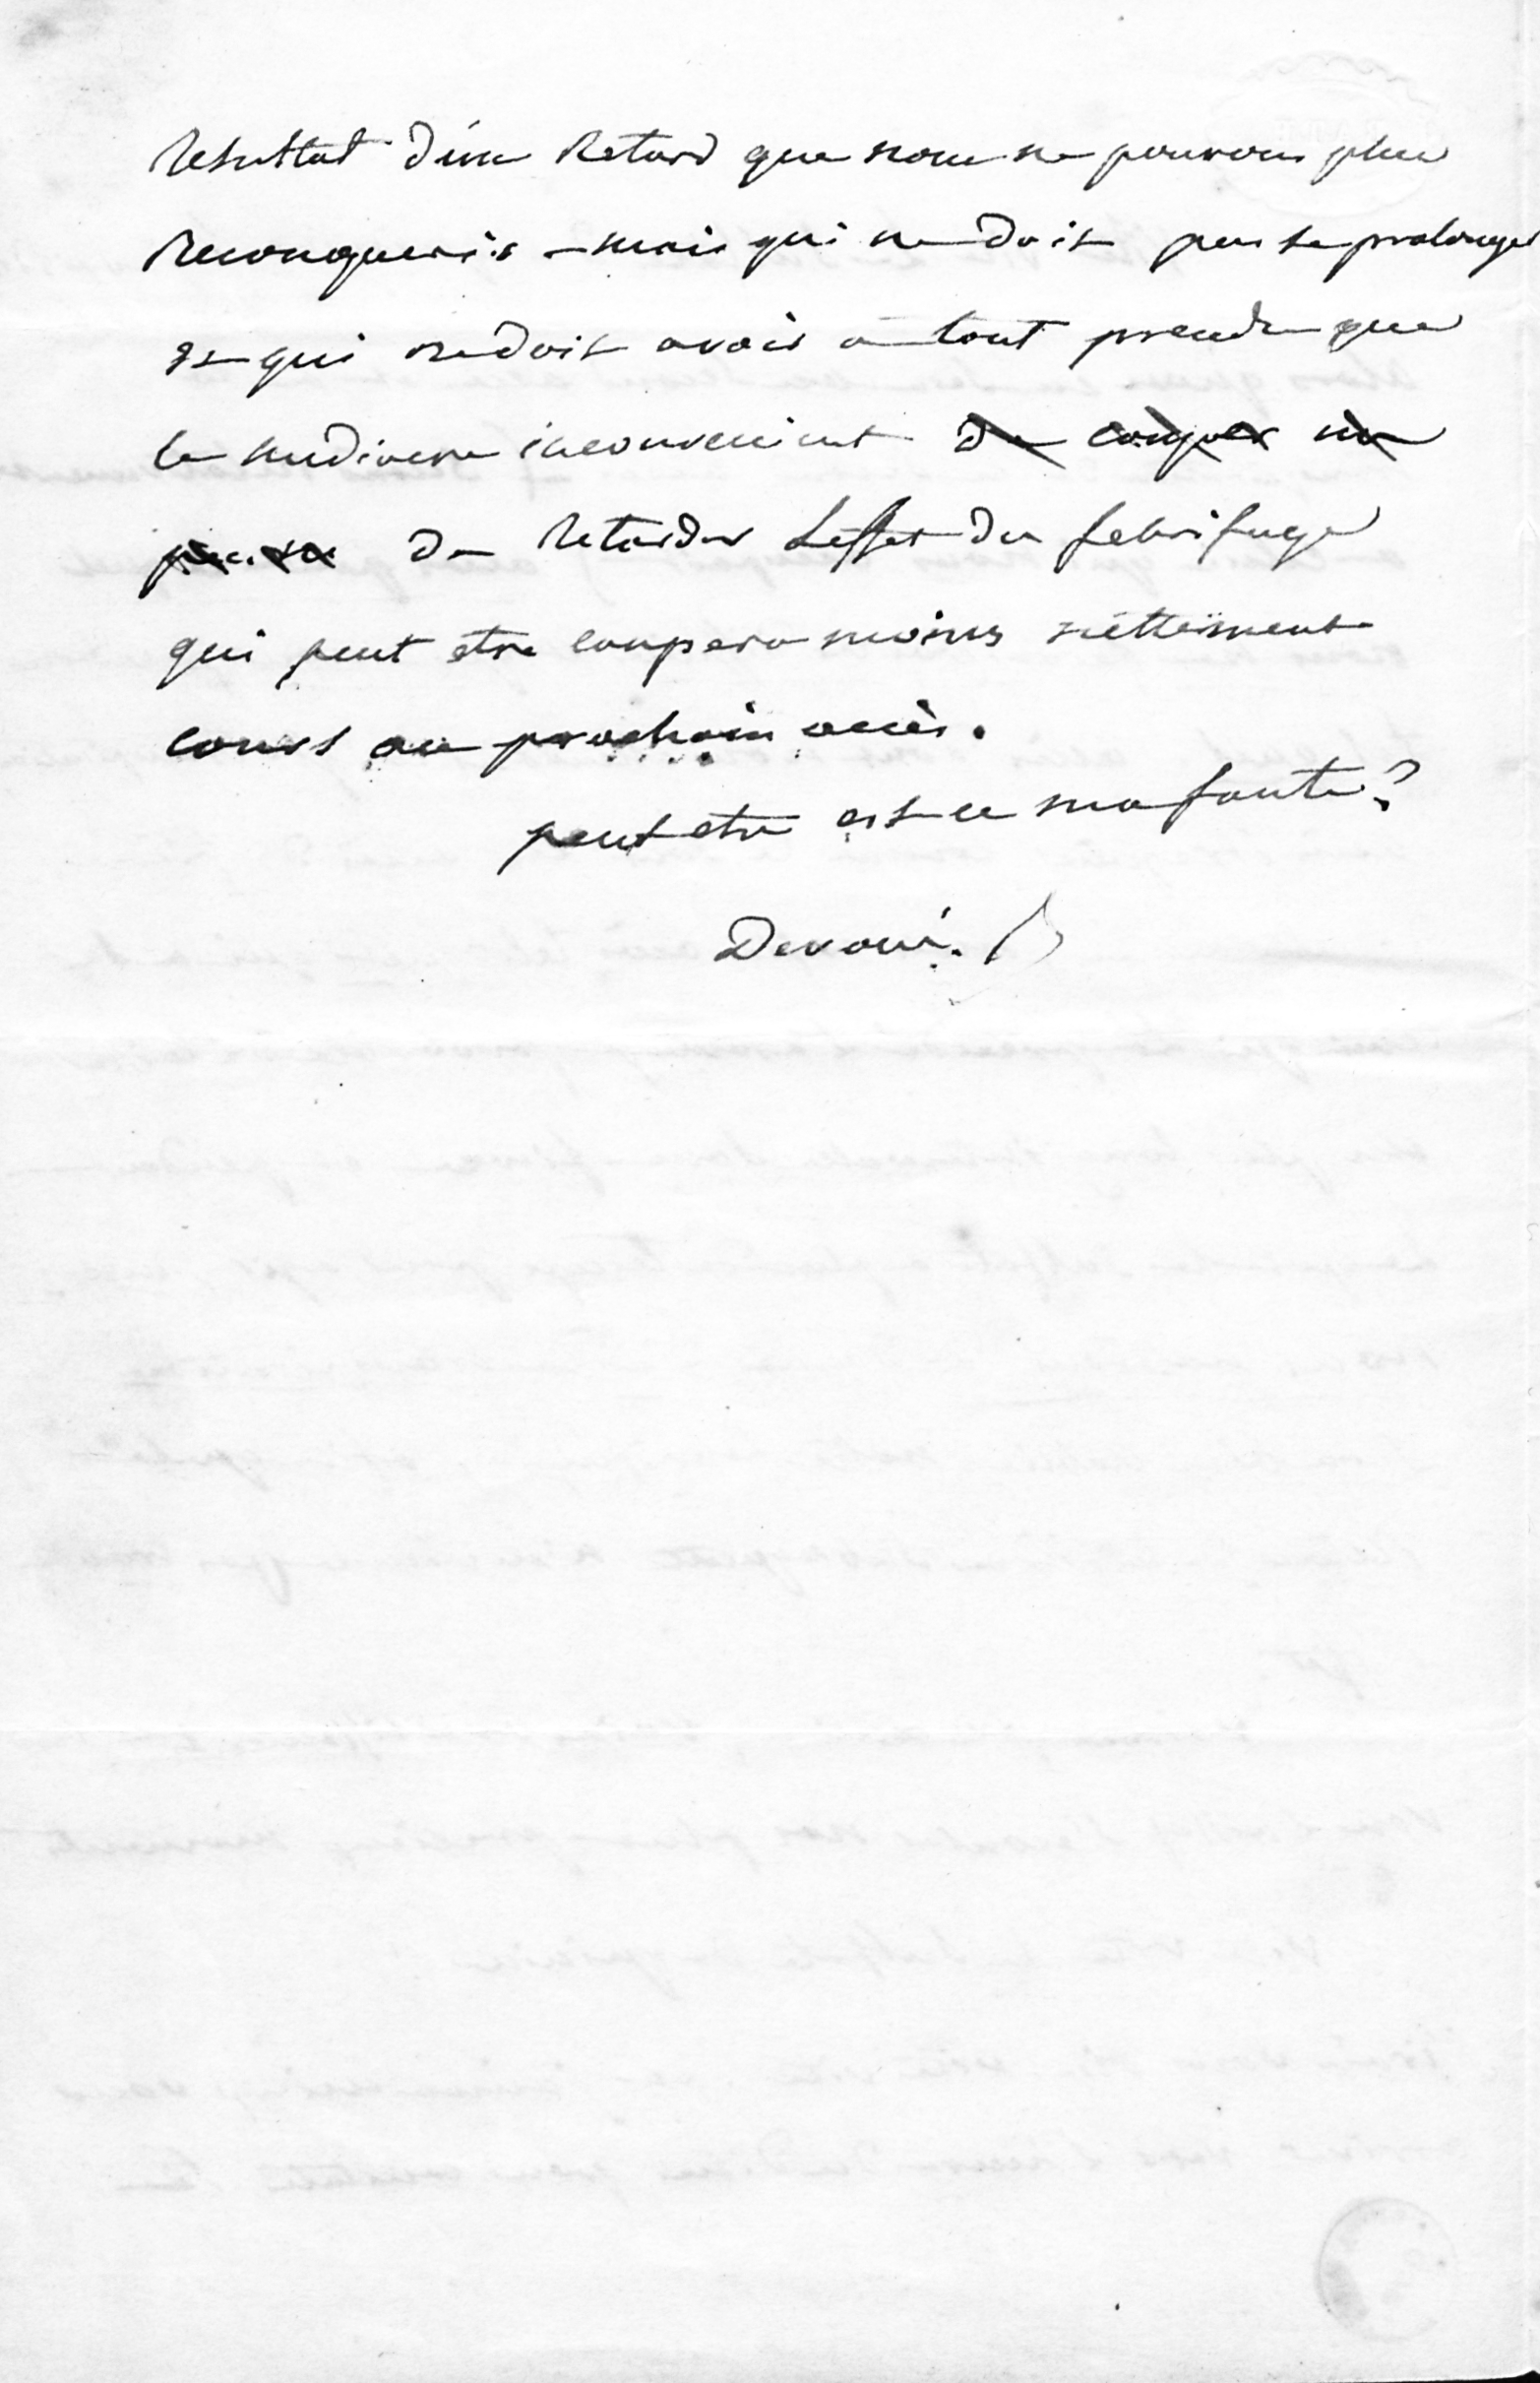 resultat d'un Retard que nous ne pouvons plus
Reconquerir - mais qui ne doit pas se prolonger
et qui ne doit avoir a tout prendre que
le mediocre inconvenient de couper un
de retarder L'effet du febrifuge
qui peut etre coupera moins nettement
cours au prochain accès.
peut etre est ce ma faute?
Devoué.